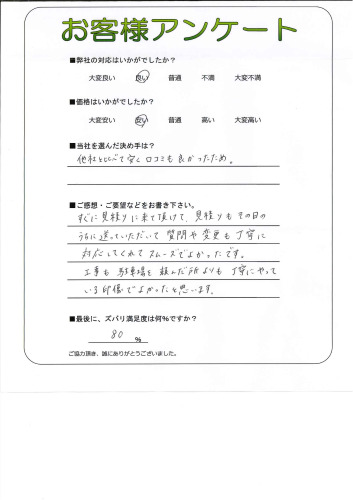 お客様アンケート
■弊社の対応はいかがでしたか?
大変良い 良い 普通 不満 大変不満
■価格はいかがでしたか?
大変安い 安い 普通 高い 大変高い
■当社を選んだ決め手は?
他社と比べて安く口コミも良かったため。
■ご感想・ご要望などをお書き下さい。
すぐに見積りに来て頂けて、見積りもその日の
うちに送っていただいて質問や変更も丁寧に
対応してくれてスムーズでよかったです。
工事も駐車場を頼んだ所よりも丁寧にやって
いる印象でよかったと思います。
■最後に、ズバリ満足度は何%ですか?
80 %
ご協力頂き、誠にありがとうございました。